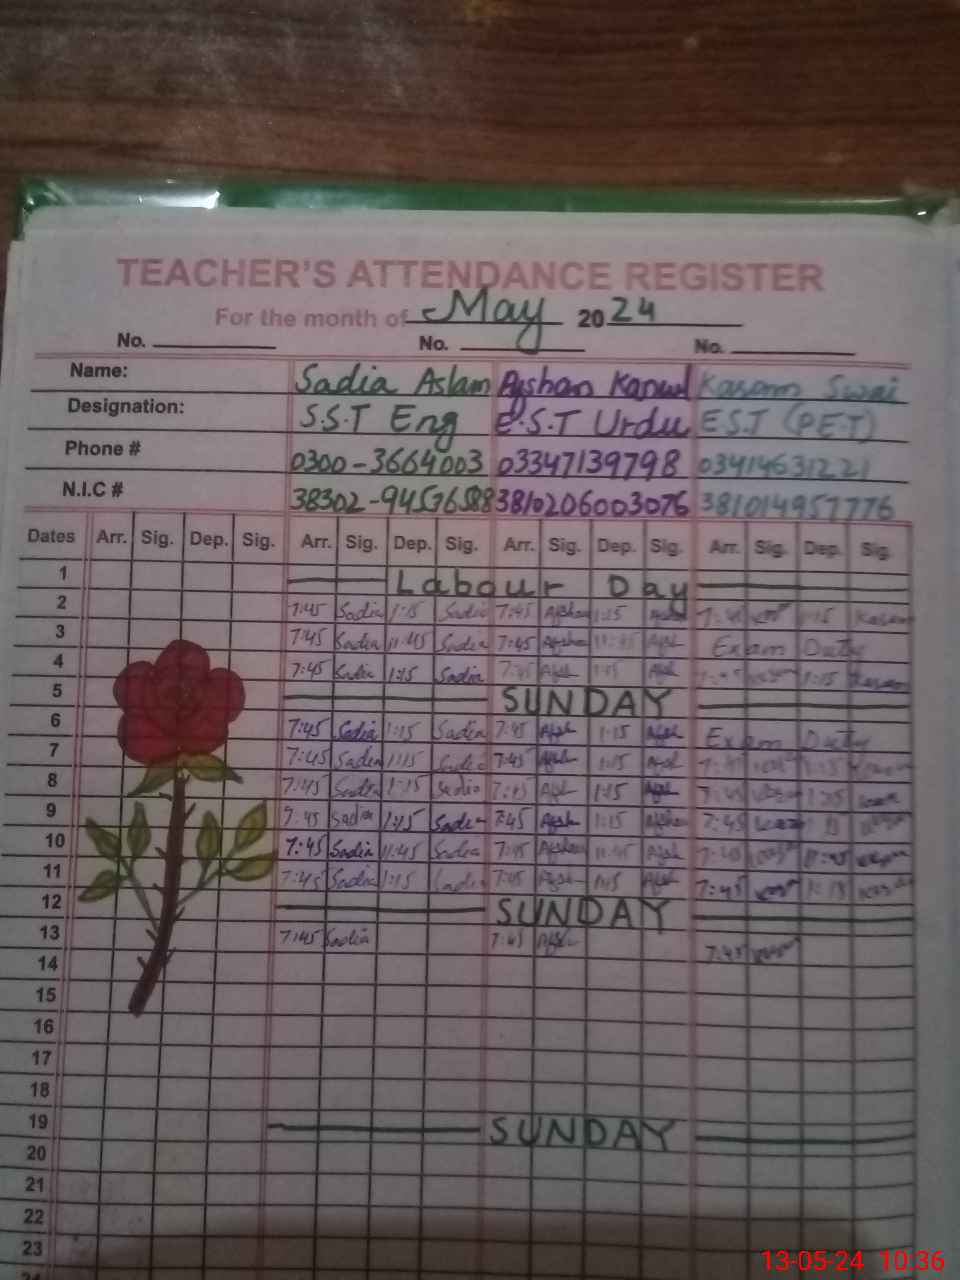 TEACHER'S ATTENDANCE REGISTER
For the month of May 2024
No. No. No.
Name: Sadia Aslam Afshan Kanwal Kasam
Designation: S.S.T Eng E.S.T Urdu E.S.T (P.E.T)
Phone # 0300-3664003 03347139798 03414631221
N.I.C # 38302-9457658838102060030763810149577​76
Dates Arr. Sig. Dep. Sig. Arr. Sig. Dep. Sig. Arr. Sig. Dep. Sig. Arr. Sig. Dep. Sig.
1 Labour Day
2 7:45 Sadia 1:15 Sadia 7:45 Afshan 1:15 7:45 1:15 Kasam
3 7:45 Sadia 11:45 Sadia 7:45 Afshan 11:45 Afsh Exam Duty
4 7:45 Sadia 1:15 Sadia 7:45 Afsh 1:15 Afsh 7:45 1:15 Kasam
5 SUNDAY
6 7:45 Sadia 1:15 Sadia 7:45 Afsh 1:15 Afsh Exam Duty
7 7:45 Sadia 1:15 Sadia 7:45 Afsh 1:15 Afsh 7:45 1:15
8 7:45 Sadia 1:15 Sadia 7:45 Afsh 1:15 Afsh 7:45 1:15
9 7:45 Sadia 1:15 Sadia 7:45 Afsh 1:15 Afshan 7:45
10 7:45 Sadia 11:45 Sadia 7:45 Afshan 11:45 Afsh 7:45
11 7:45 Sadia 1:15 Sadia 7:45 Afsh 1:15 Afsh 7:45 1:15
12 SUNDAY
13 7:45 Sadia 7:45 Afsh 7:45
14
15
16
17
18
19 SUNDAY
20
21
22
23
24
13-05-24 10:36